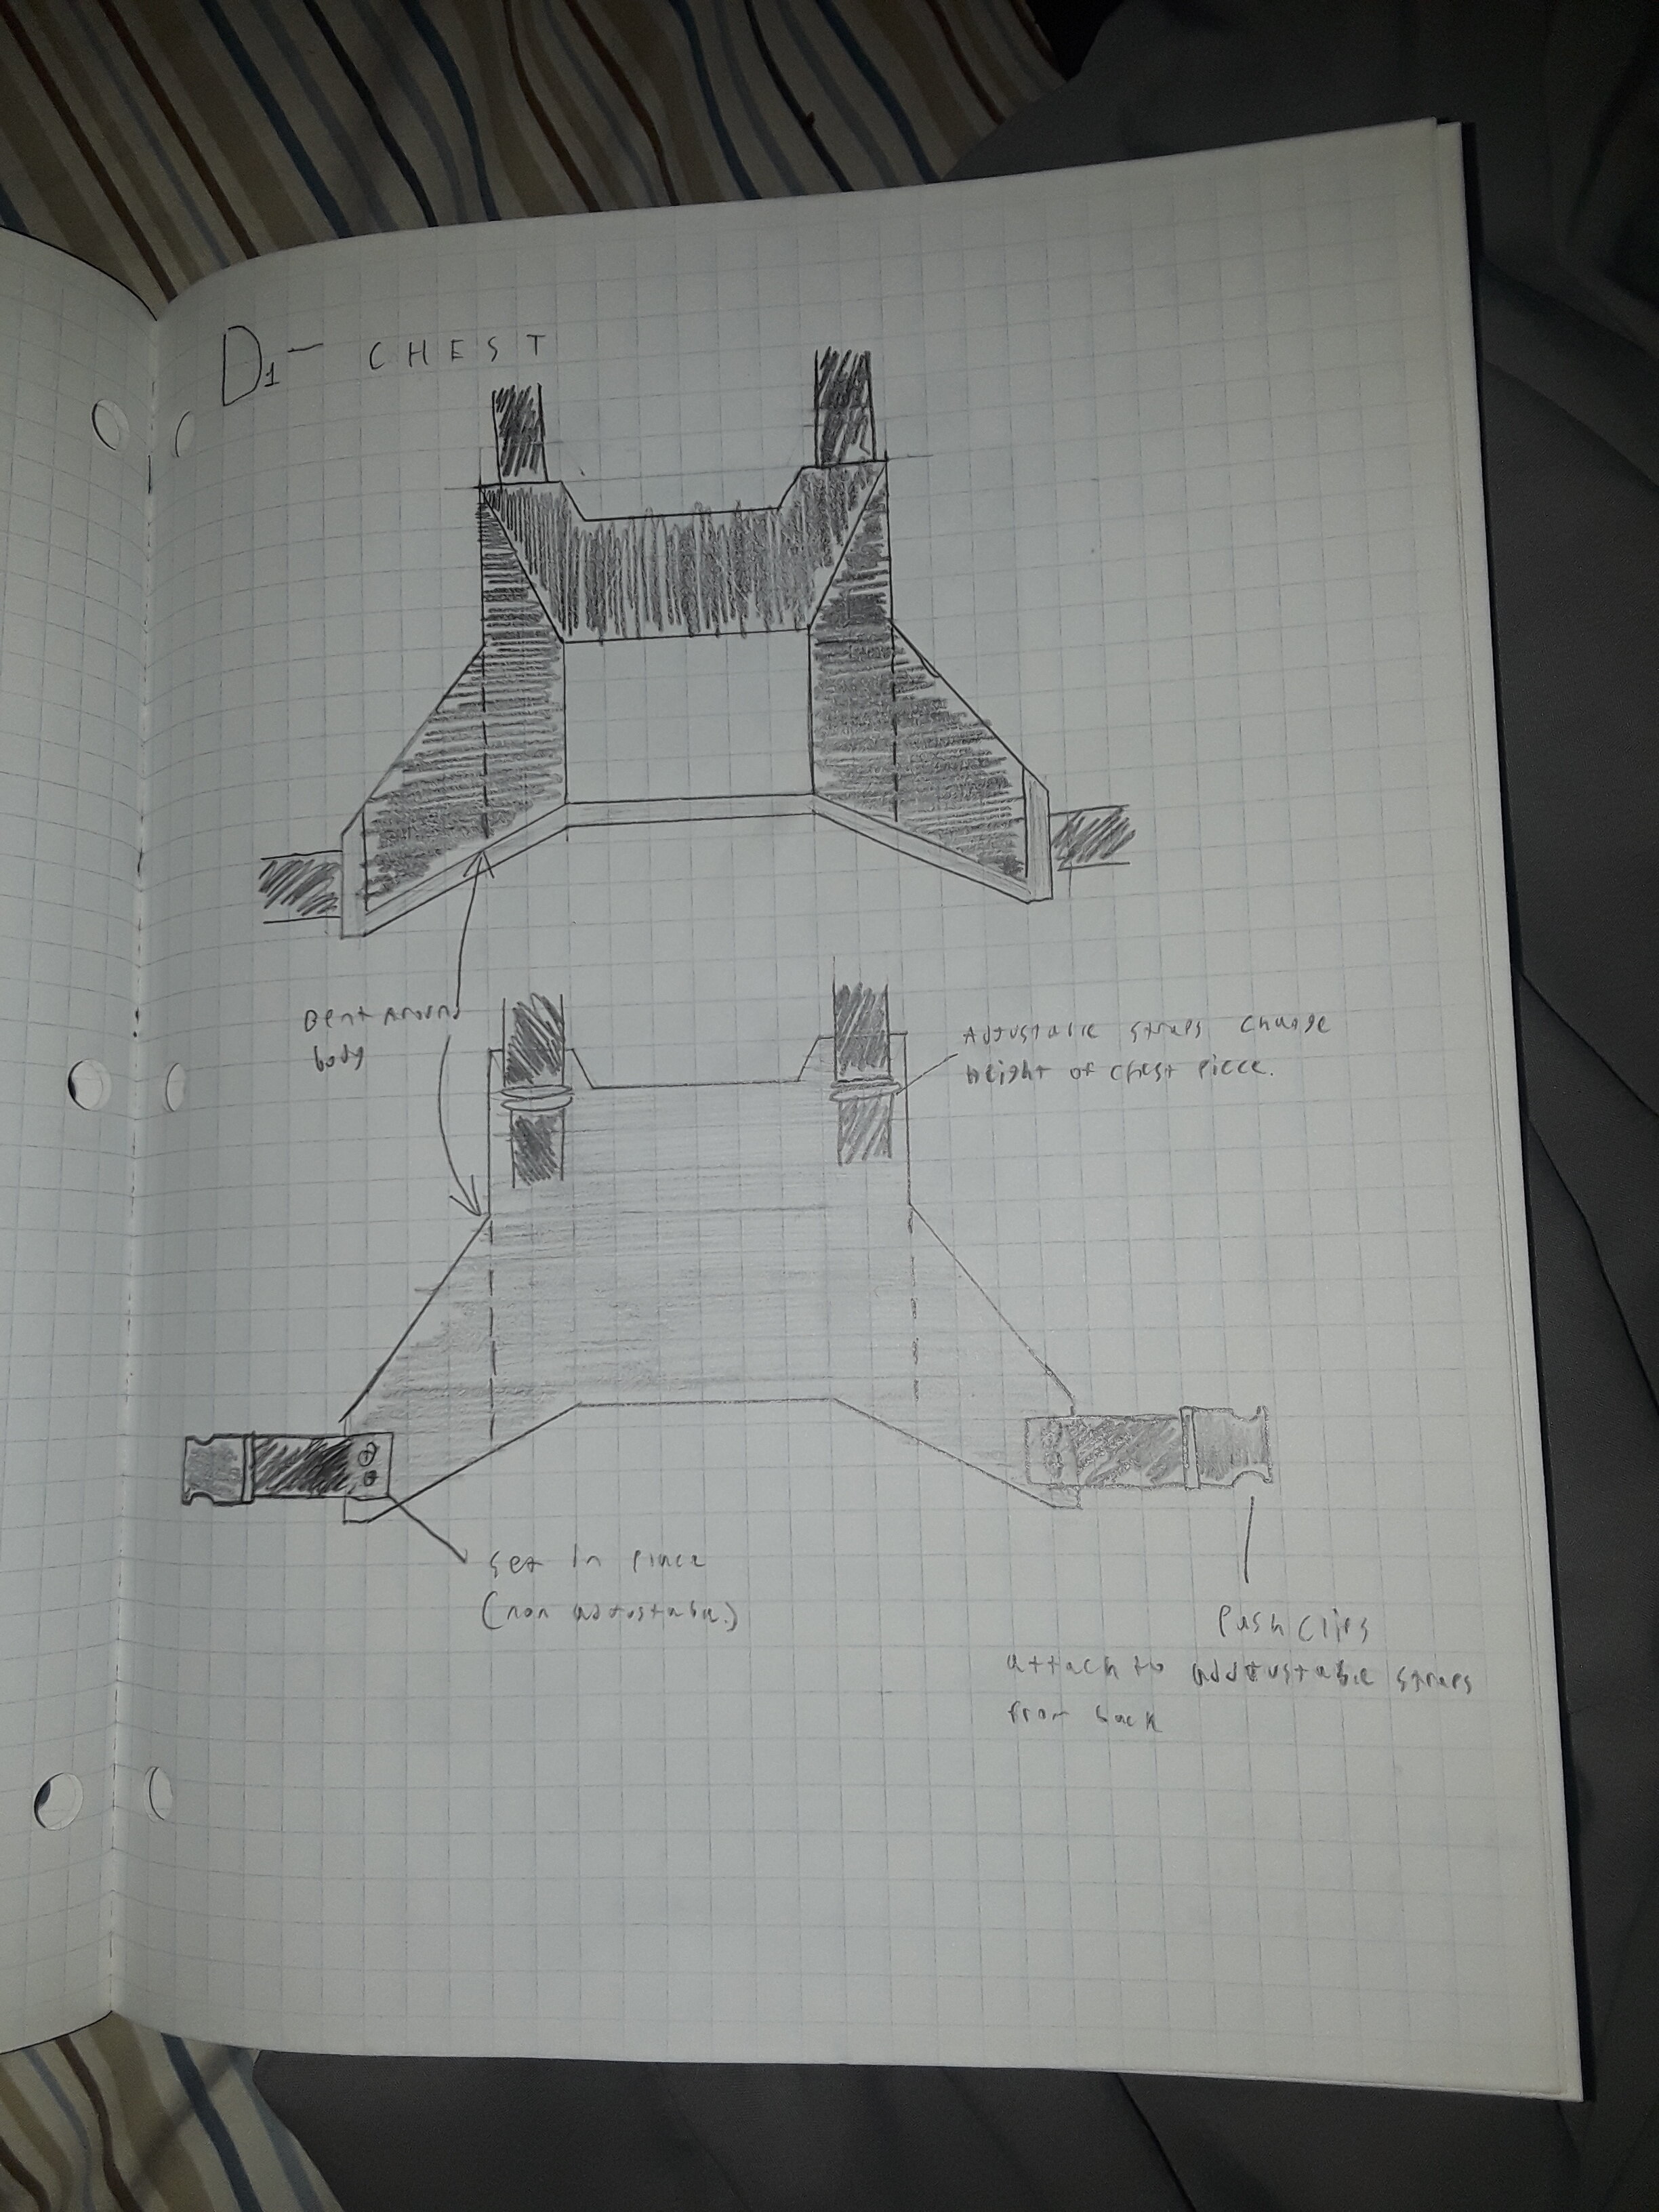 D1- CHEST
Bent Around
body
Adjustable straps change
height of chest piece.
Set in place
(non adjustable.)
Push Clips
attach to addjustable straps
from back